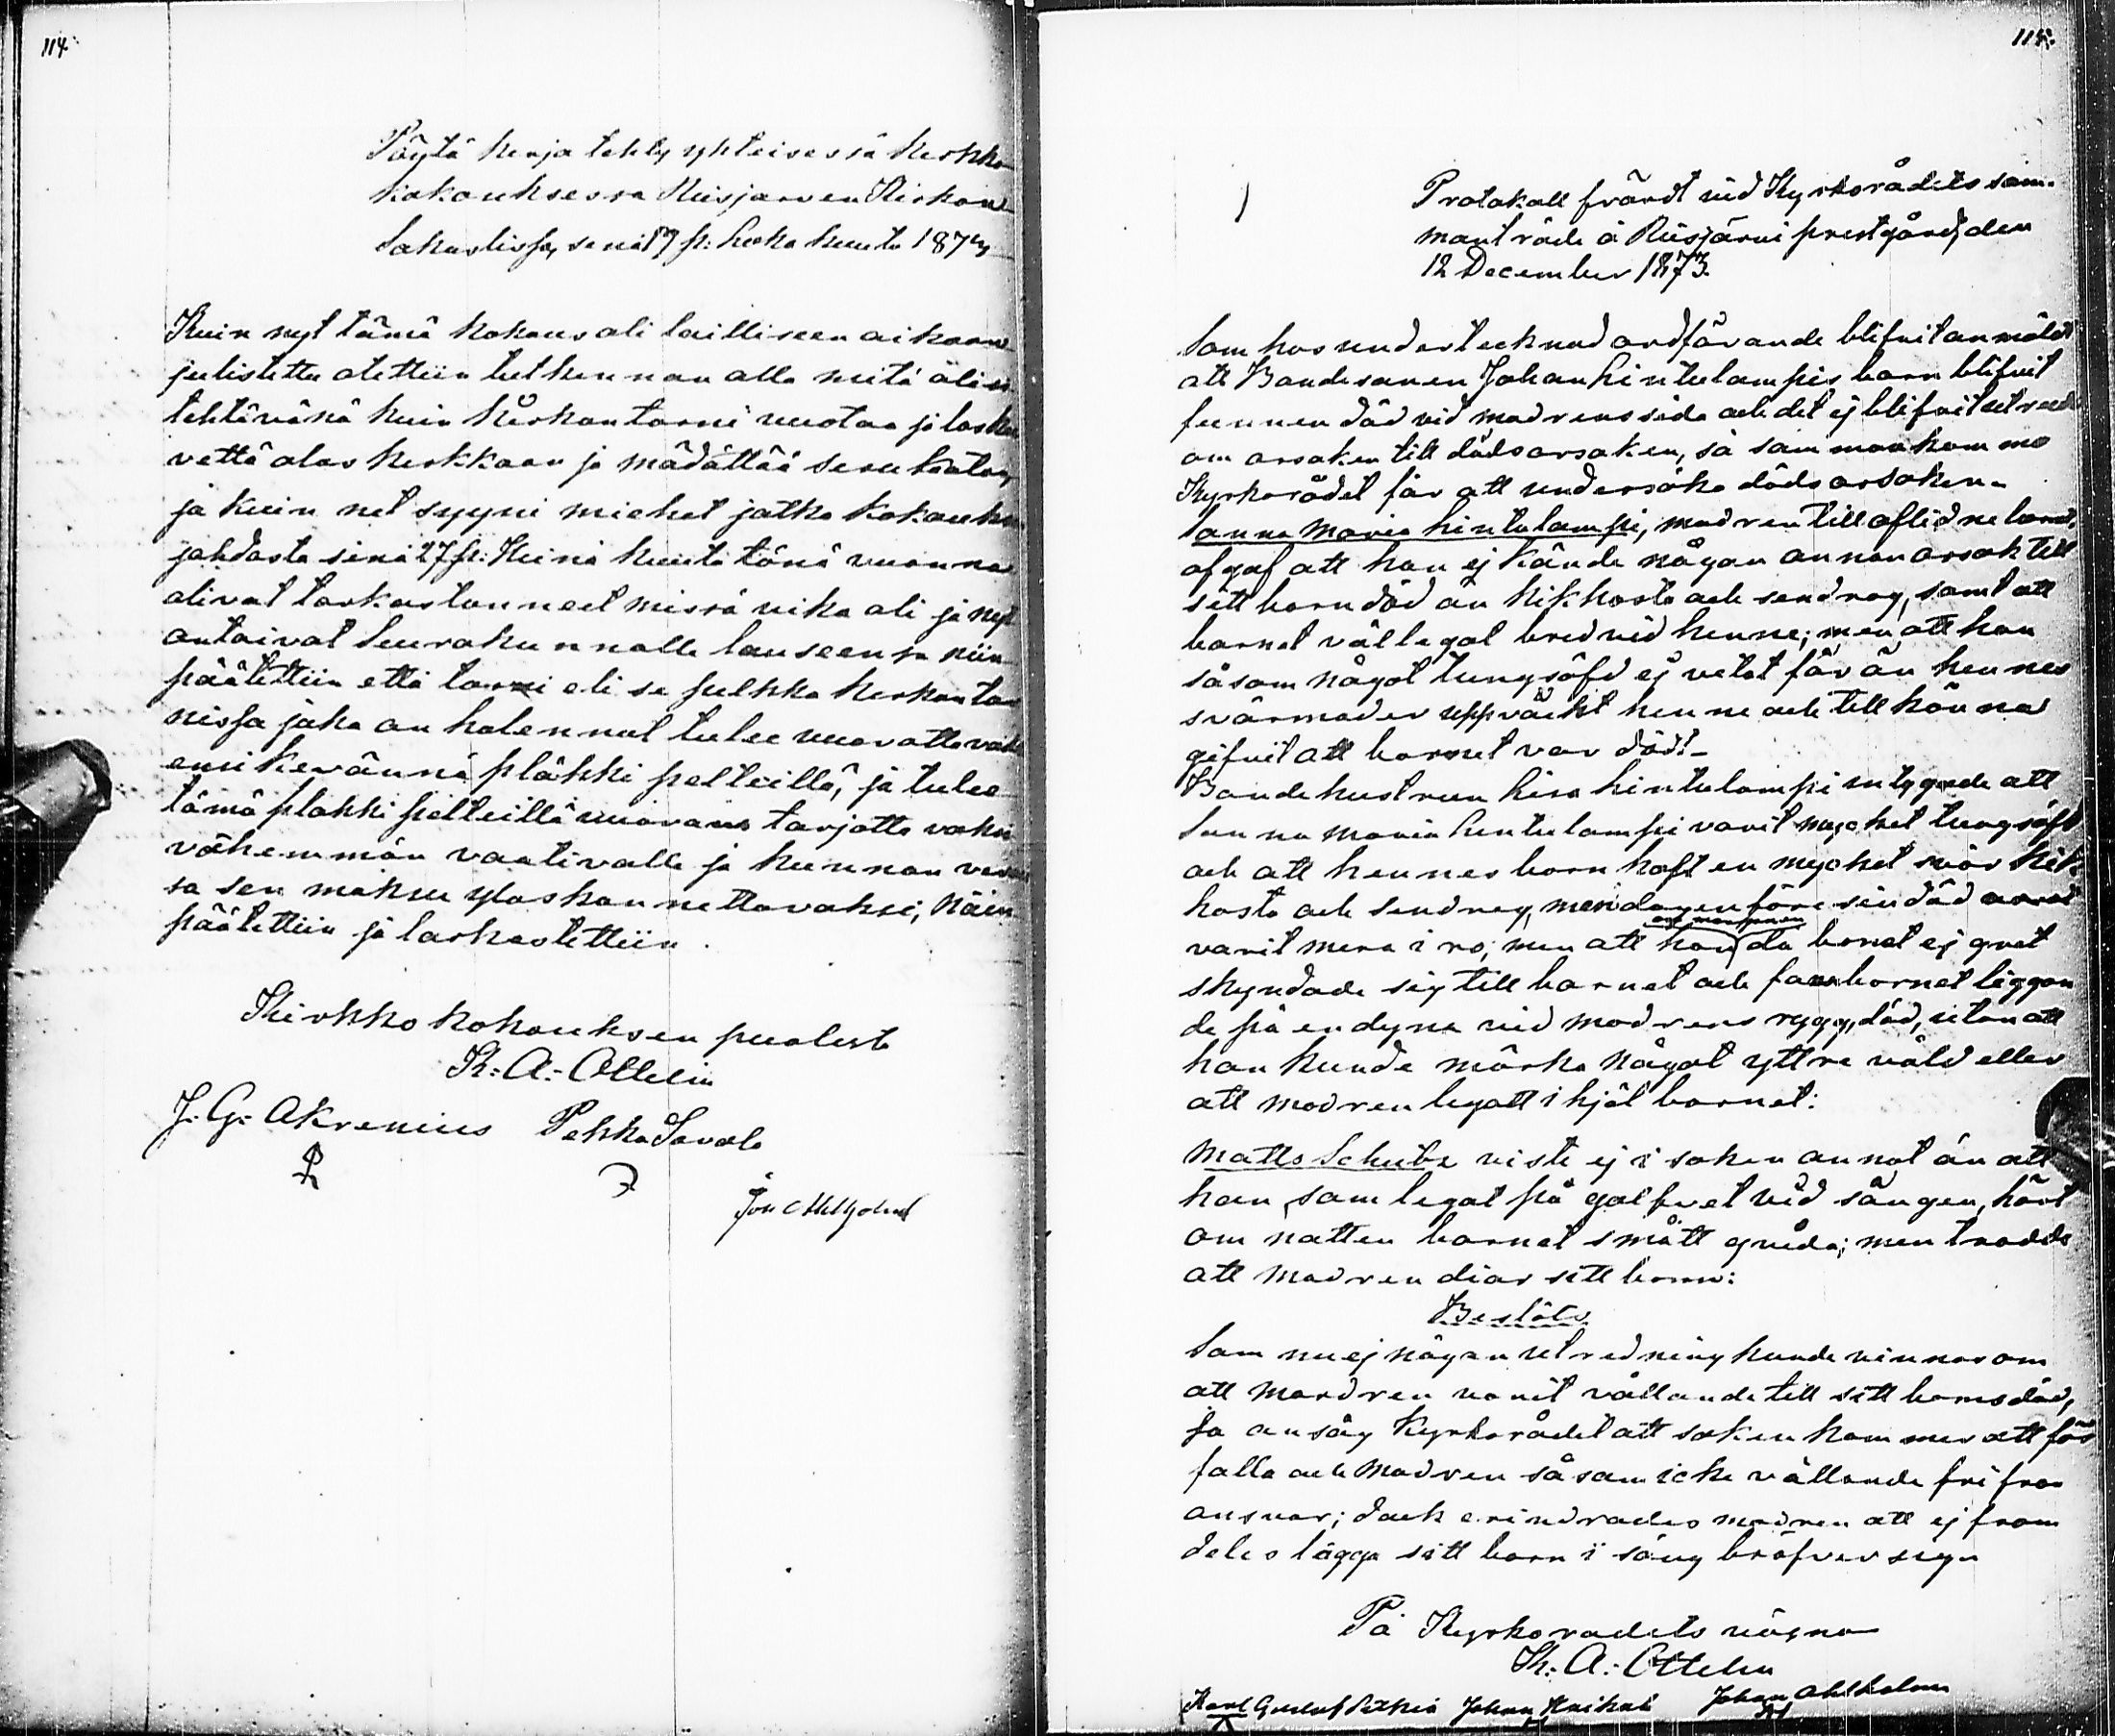 114.
Pöytä kirja tehty yhteisessä kirkko
kokouksessa Reisjärven Kirkon
Sakastissa, senä 17 p: Loka kuuta 1874
Kuin nyt tämä kokous oli lailliseen aikaan
julistettu otettiin tutkinnan alle mitä olisi
tehtävänä kuin kirkon torni vuotaa ja laskee
vettä alas kirkkoon ja mädättää
ja kuin net syyni miehet jotka kokouksen
johdosta sinä 27 p: Heinä kuuta tänä vuonna
olivat tarkastanneet missä vika oli ja nyt
antaivat seurakunnalle lauseensa niin
päätettiin että torni eli se puhka kirkon tor
nissa joka on halennut tulee vuorattavaksi
ensi kevännä pläkki pelteillä, ja tulee
tämä pläkki pelteillä vuoraus tarjotta vaksi
vähemmän vaativalle ja kunnan
sa sen maksu ylöskannettavaksi, Näin
päätettiin ja tarkastettiin.
Kirkko kokouksen puolest
K: A: Ottelin
J. G. Akrenius Pekka Savola
115.
Protokoll fördt vid Kyrkorådets sam-
manträde å Reisjärvi prestgård, den
12 December 1873.
Som hos undertecknad ordförande blifvit anmäldt
att Bondesonen Johan Hintulampis barn blifvit
funnen död vid modrens sida och det ej blifvit utredt
om orsaken till dödsorsaken, så sammankom
Kyrkorådet för att undersöka dödsorsaken.
Sanna Maria Hintulampi, modren till aflidne barnet,
afgaf att hon ej kände någon annan orsak till
sitt barn död än kikhosta och sendrag, samt att
barnet väl legat bredvid henne; men att hon
såsom något tungsöfd ej vetat för än hennes
svärmoder uppväckt henne och till känna
gifvit att barnet var död!-
Bondehustrun Lisa Hintulampi intygade att
Sanna Maria Hintulampi varit mycket tungsöfd
och att hennes barn haft en mycket svår kik
hosta och sendrag, men dagen före sin död
varit mera i ro; men att hon om morgonen då barnet ej gret
skyndade sig till barnet och fann barnet liggan
de på en dyna vid modrens rygg, död, utan att
hon kunde märka något yttre våld eller
att modren legatt ihjäl barnet:
Matts viste ej i saken annat än att
han, som legat på golfvet vid sängen, hört
om natten barnet smått gnida; men trodde
att modren diar sitt barn:
Beslöts
Som nu ej någon utredning kunde vinnas om
att modren varit vållande till sitt barns död,
så ansåg Kyrkorådet att saken kommer att för
falla och modren såsom icke vållande fri från
ansvar; dock erindrades modren att ej fram
deles lägga sitt barn i säng bröfver sig.
På Kyrkorådets vägnar
K: A: Ottelin
Karl Gustaf Johan Johan Ahlholm